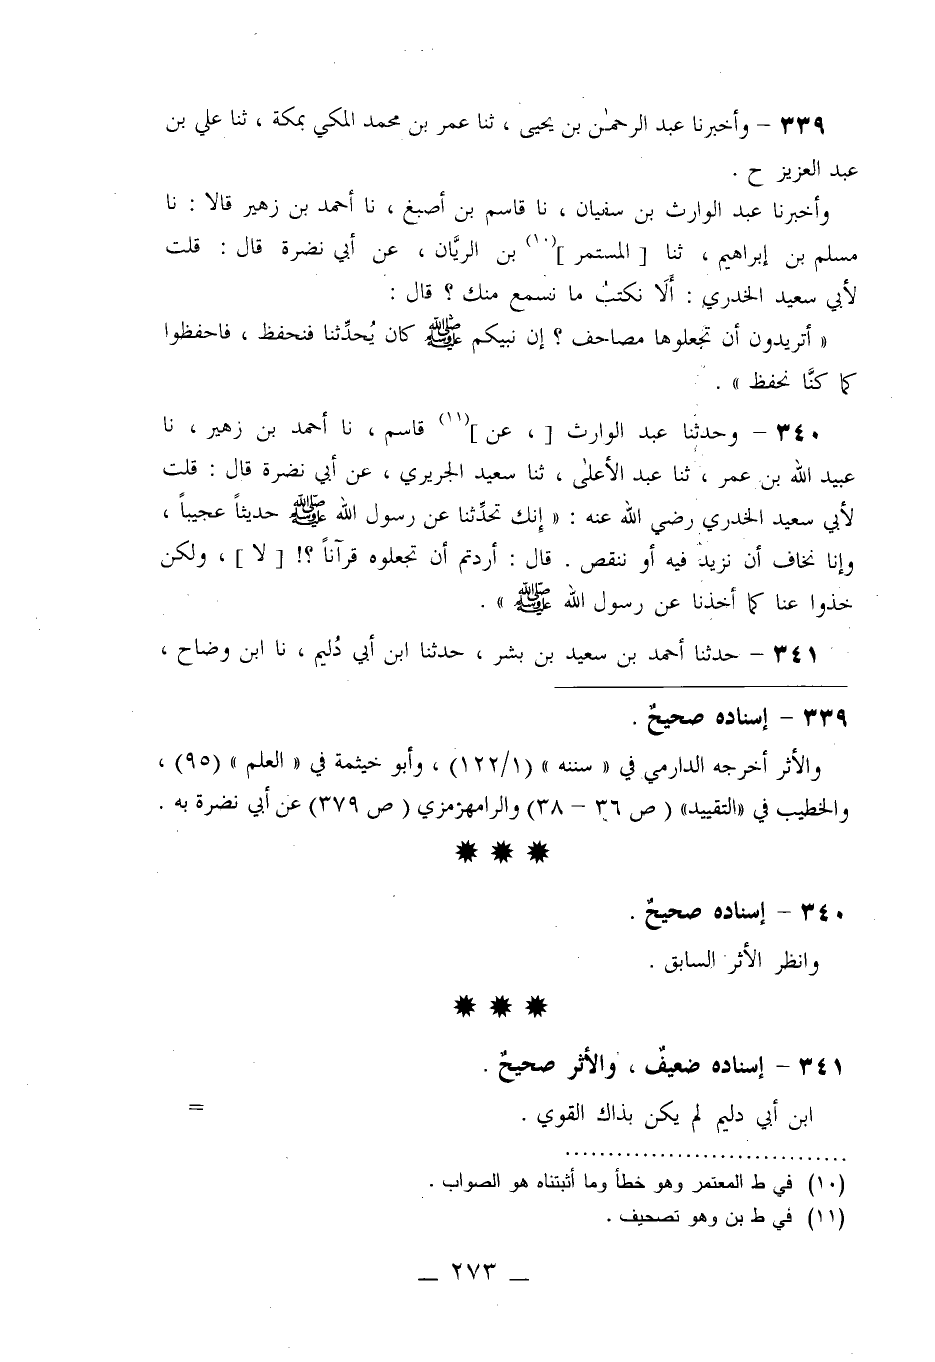 ٣٣٩ - وأخبرنا عبد الرحمـٰن بن يحيى ، ثنا عمر بن محمد المكي بمكة ، ثنا علي بن
عبد العزيز ح .
وأخبرنا عبد الوارث بن سفيان ، نا قاسم بن أصبغ ، نا أحمد بن زهير قالا : نا
مسلم بن إبراهيم ، ثنا [ المستمر ](١٠) بن الريَّان ، عن أبي نضرة قال : قلت
لأبي سعيد الخدري : أَلَا نكتبُ ما نسمع منك ؟ قال :
« أتريدون أن تجعلوها مصاحف ؟ إن نبيكم ﷺ كان يُحدِّثنا فنحفظ ، فاحفظوا
كما كنَّا نحفظ » .
٣٤٠ - وحدثنا عبد الوارث [ ، عن ](١١) قاسم ، نا أحمد بن زهير ، نا
عبيد الله بن عمر ، ثنا عبد الأعلىٰ ، ثنا سعيد الجريري ، عن أبي نضرة قال : قلت
لأبي سعيد الخدري رضي الله عنه : « إِنك تحدِّثنا عن رسول الله ﷺ حديثاً عجيباً ،
وإنا نخاف أن نزيد فيه أو ننقص . قال : أردتم أن تجعلوه قرآناً ؟! [ لا ] ، ولكن
خذوا عنا كما أخذنا عن رسول الله ﷺ » .
٣٤١ - حدثنا أحمد بن سعيد بن بشر ، حدثنا ابن أبي دُليم ، نا ابن وضاح ،
٣٣٩ - إسناده صحيحٌ .
والأثر أخرجه الدارمي في « سننه » (١٢٢/١) ، وأبو خيثمة في « العلم » (٩٥) ،
والخطيب في «التقييد» ( ص ٣٦ - ٣٨) والرامهزمزي ( ص ٣٧٩) عن أبي نضرة به .
✸ ✸ ✸
٣٤٠ - إسناده صحيحٌ .
وانظر الأثر السابق .
✸ ✸ ✸
٣٤١ - إسناده ضعيفٌ ، والأثر صحيحٌ .
ابن أبي دليم لم يكن بذاك القوي . =
(١٠) في ط المعتمر وهو خطأ وما أثبتناه هو الصواب .
(١١) في ط بن وهو تصحيف .
ــ ٢٧٣ ــ